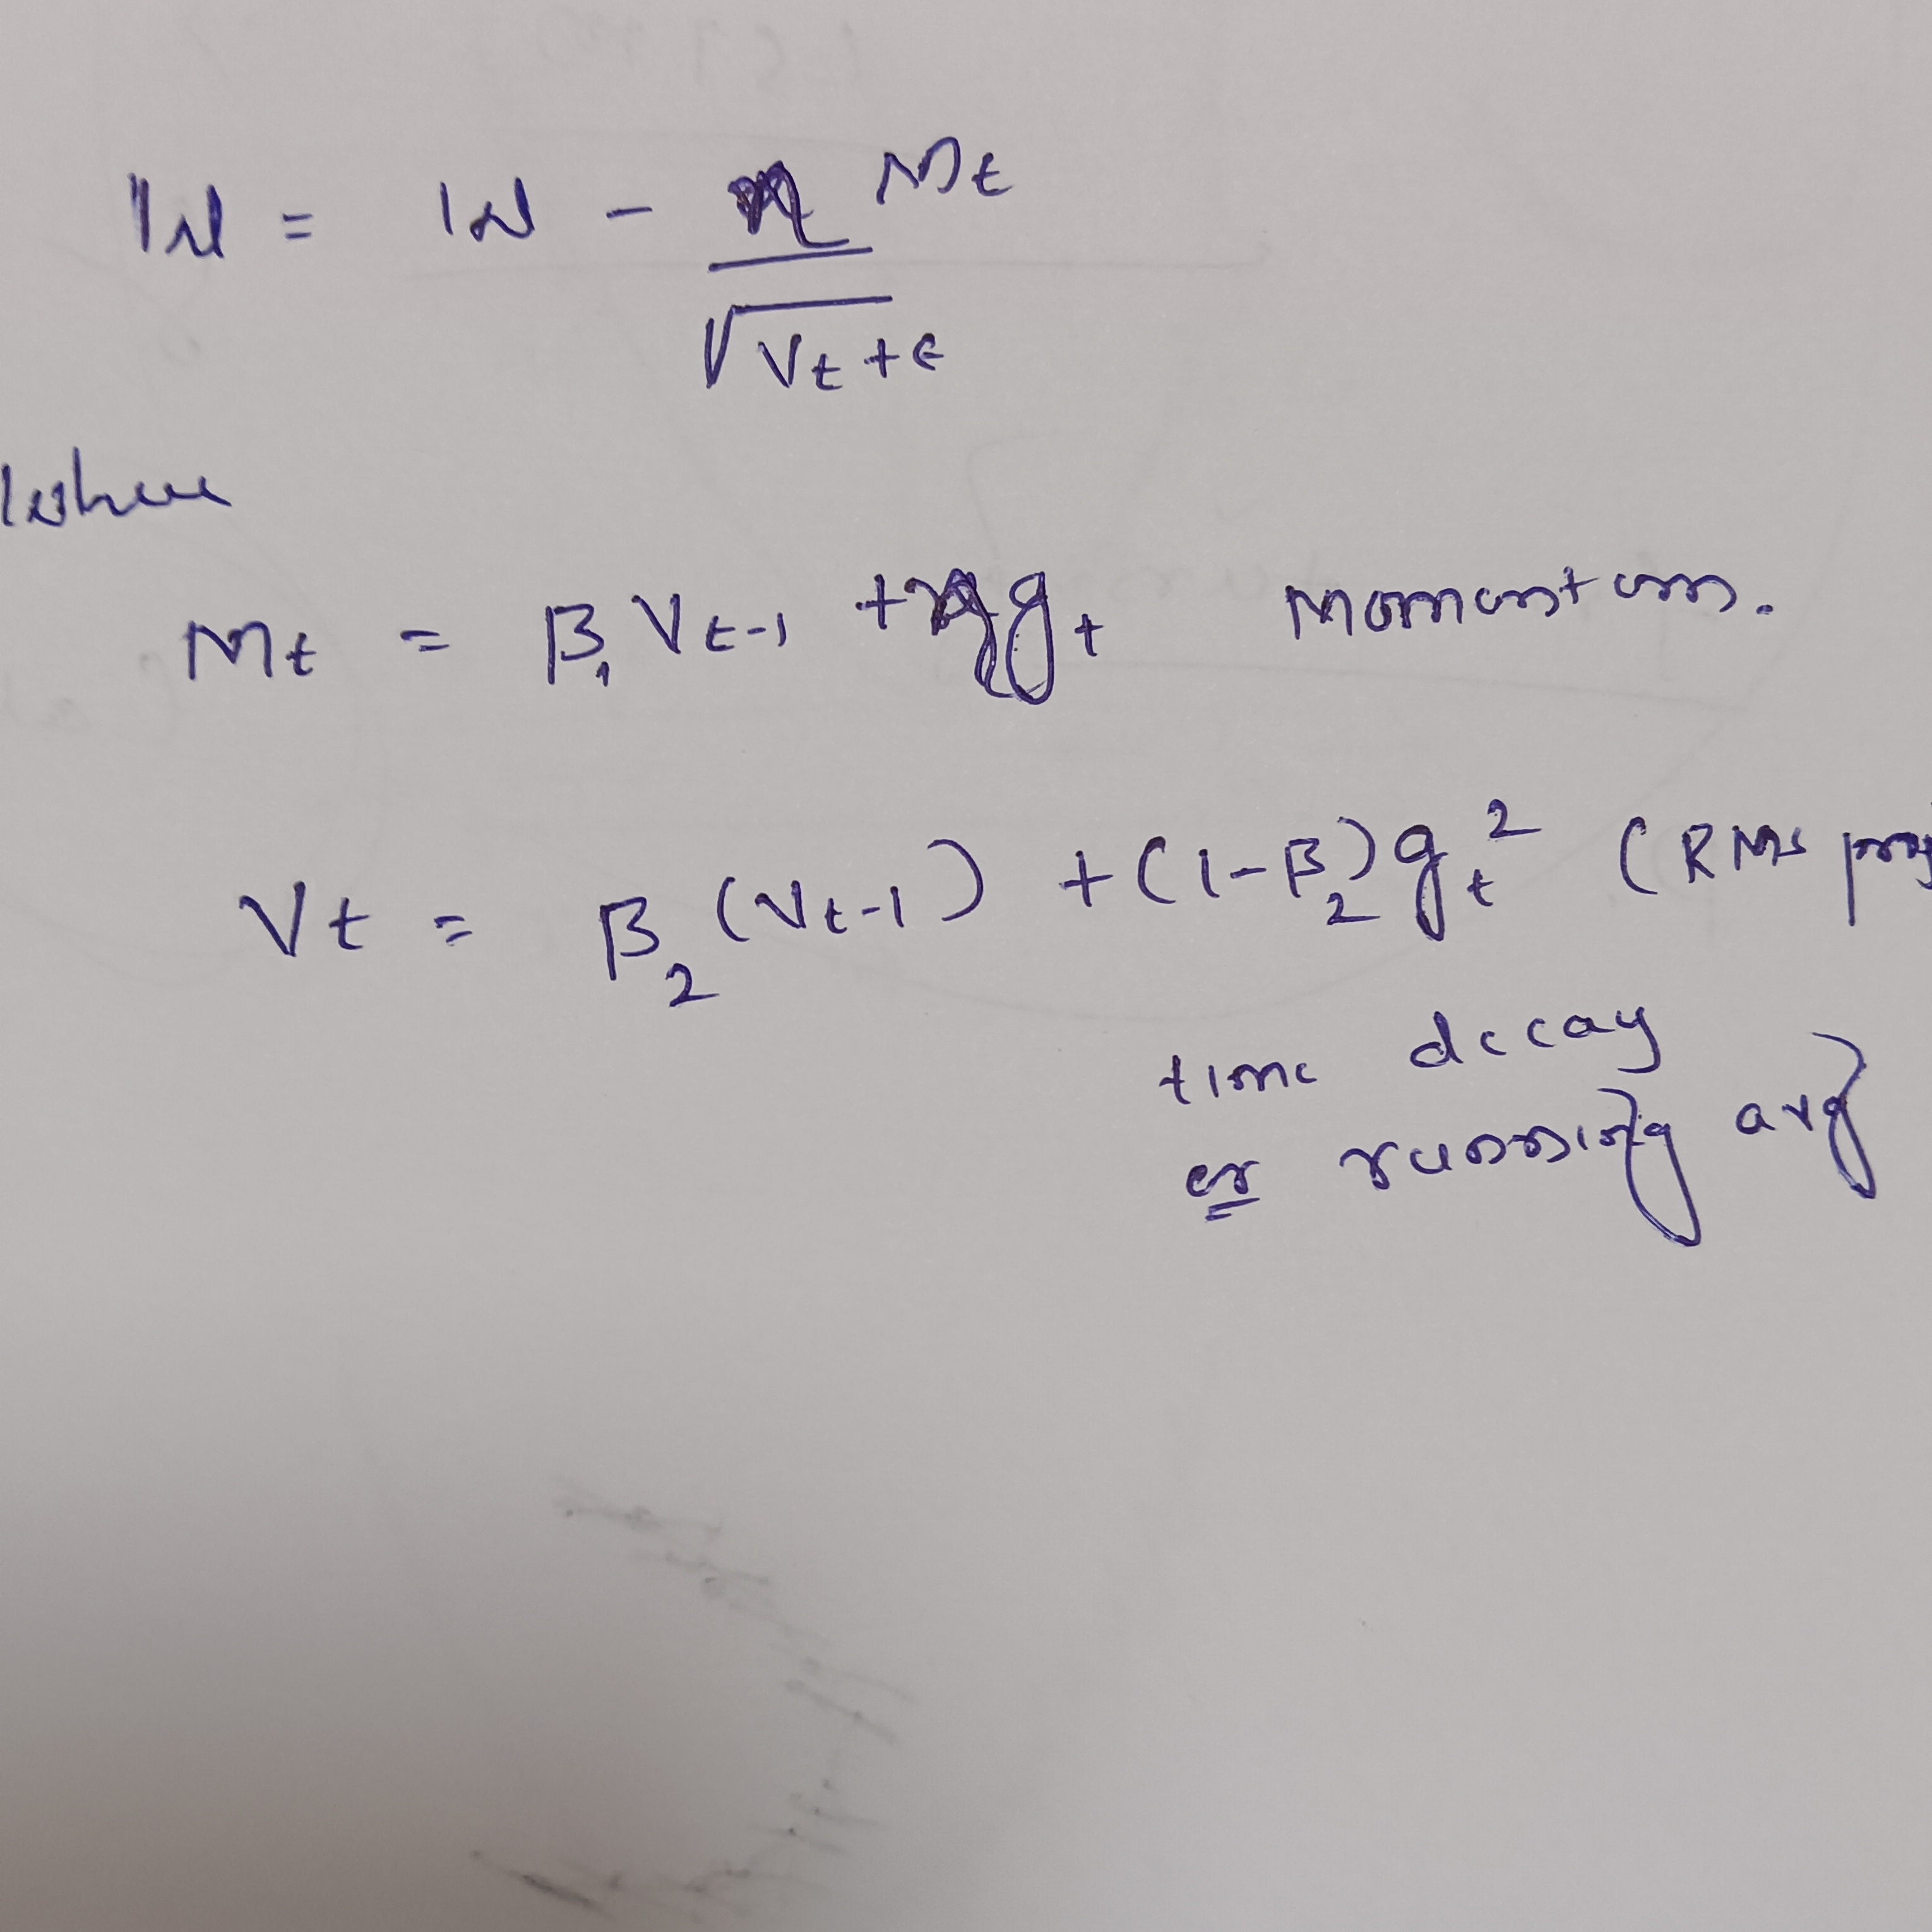 W = W - η Mt
√Vt + ϵ
where
Mt = β1 Vt-1 + ηgt Momentum.
Vt = β2 (Vt-1) + (1-β2) gt² (RMS prop
time decay
or running avg